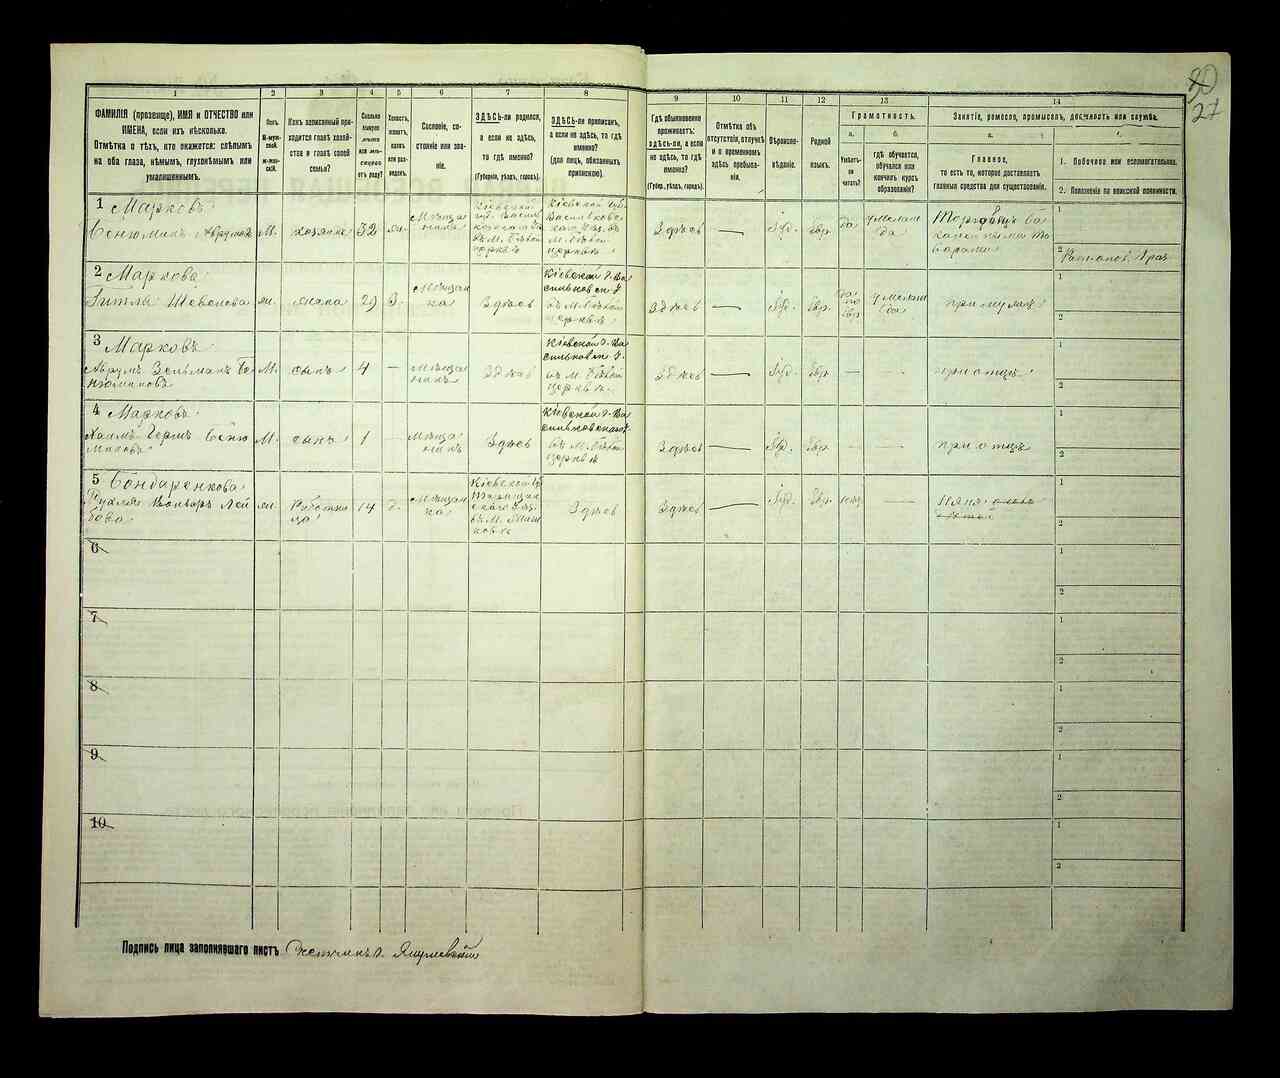 30
27
1
2
3
4
5
6
7
8
9
10
11
12
13
14
ФАМИЛІЯ (прозвище), ИМЯ и ОТЧЕСТВО или
ИМЕНА, если ихъ нѣсколько.
Отмѣтка о тѣхъ, кто окажется: слѣпымъ
на оба глаза, нѣмымъ, глухонѣмымъ или
умалишеннымъ.
Полъ.
М-муж-
ской.
ж-жен-
скій.
Какъ записанный при-
ходится главѣ хозяй-
ства и главѣ своей
семьи?
Сколько
минуло
лѣтъ
или мѣ-
сяцевъ
отъ роду?
Холостъ,
женатъ,
вдовъ
или раз-
веденъ.
Сословіе, со-
стояніе или зва-
ніе.
ЗДѢСЬ-ли родился,
а если не здѣсь,
то гдѣ именно?
(Губернія, уѣздъ, городъ).
ЗДѢСЬ-ли приписанъ,
а если не здѣсь, то гдѣ
именно?
(для лицъ, обязанныхъ
припискою).
Гдѣ обыкновенно
проживаетъ:
ЗДѢСЬ-ли, а если
не здѣсь, то гдѣ
именно?
(Губерн., уѣздъ, городъ).
Отмѣтка объ
отсутствіи, отлучкѣ
и о временномъ
здѣсь пребыва-
ніи.
Вѣроиспо-
вѣданіе.
Родной
языкъ.
Грамотность.
а.
б.
Умѣетъ-
ли
читать?
гдѣ обучается,
обучался или
кончилъ курсъ
образованія?
Занятіе, ремесло, промыселъ, должность или служба.
Главное,
то есть то, которое доставляетъ
главныя средства для существованія.
1. Побочное или вспомогательное.
2. Положеніе по воинской повинности.
1 Марковъ
Бенюминъ Аврумов
М.
хозяинъ
32
ж.
Мѣща
нинъ
Кіевской
губ. Василь
ковскаго уѣз
въ М. Бѣлой
церкви
Кіевской губ.
Васильковс
каго уѣз. въ
М. Бѣлой
церкви
Здѣсь
Іуд.
евр.
да
Торговецъ ба
калейными то
варами
1
2
2 Маркова
Гитля
жена
29
З.
Мѣщан
ка
Здѣсь
Кіевской г. Ва
сильков
въ М. Бѣлой
церкви
Здѣсь
Іуд.
Евр.
при мужѣ
1
2
3 Марковъ
Аврумъ Зельманъ Бе
нюминовъ
М.
сынъ
4
Мѣща
нинъ
Здѣсь
Кіевской г. Ва
въ М. Бѣлой
церкви
Здѣсь
Іуд.
Евр.
при отцѣ
1
2
4 Марковъ
Хаимъ Герш Беню
миновъ
М.
сынъ
1
Мѣща
нинъ
Здѣсь
Кіевской г. Ва
сильковскаго
въ М. Бѣлой
церкви
Здѣсь
Іуд.
Евр.
при отцѣ
1
2
5 Бондаренкова
Лей
бова
ж.
Работни
ца
14
д.
Мѣщан
ка
Кіевской г.
Таращан
скаго уѣз.
въ М.
Здѣсь
Здѣсь
Іуд.
Евр.
Няня
1
2
6
1
2
7
1
2
8
1
2
9
1
2
10
1
2
Подпись лица заполнявшаго листъ